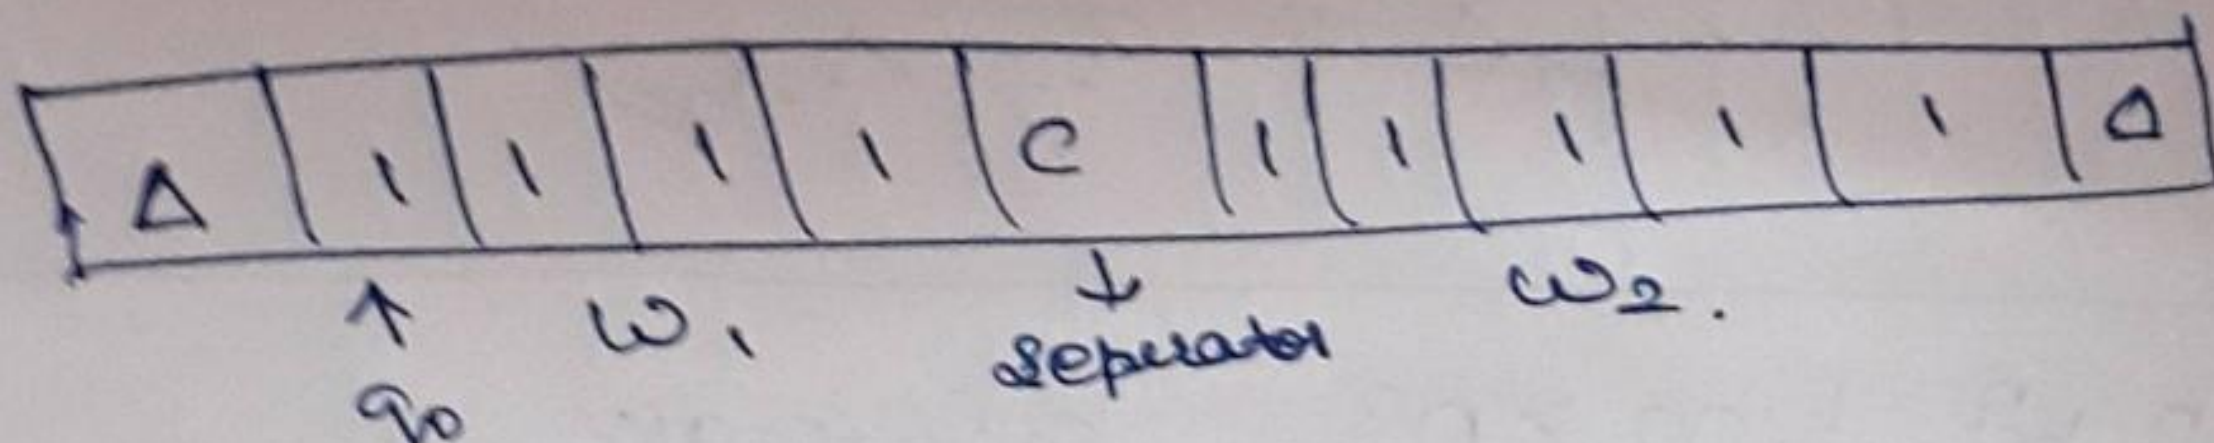 Δ 1 1 1 1 C 1 1 1 1 1 Δ
↑ W1 ↓ W2.
q0 seperator